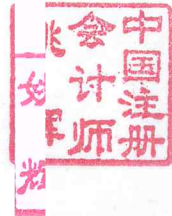 中国注册
会计师